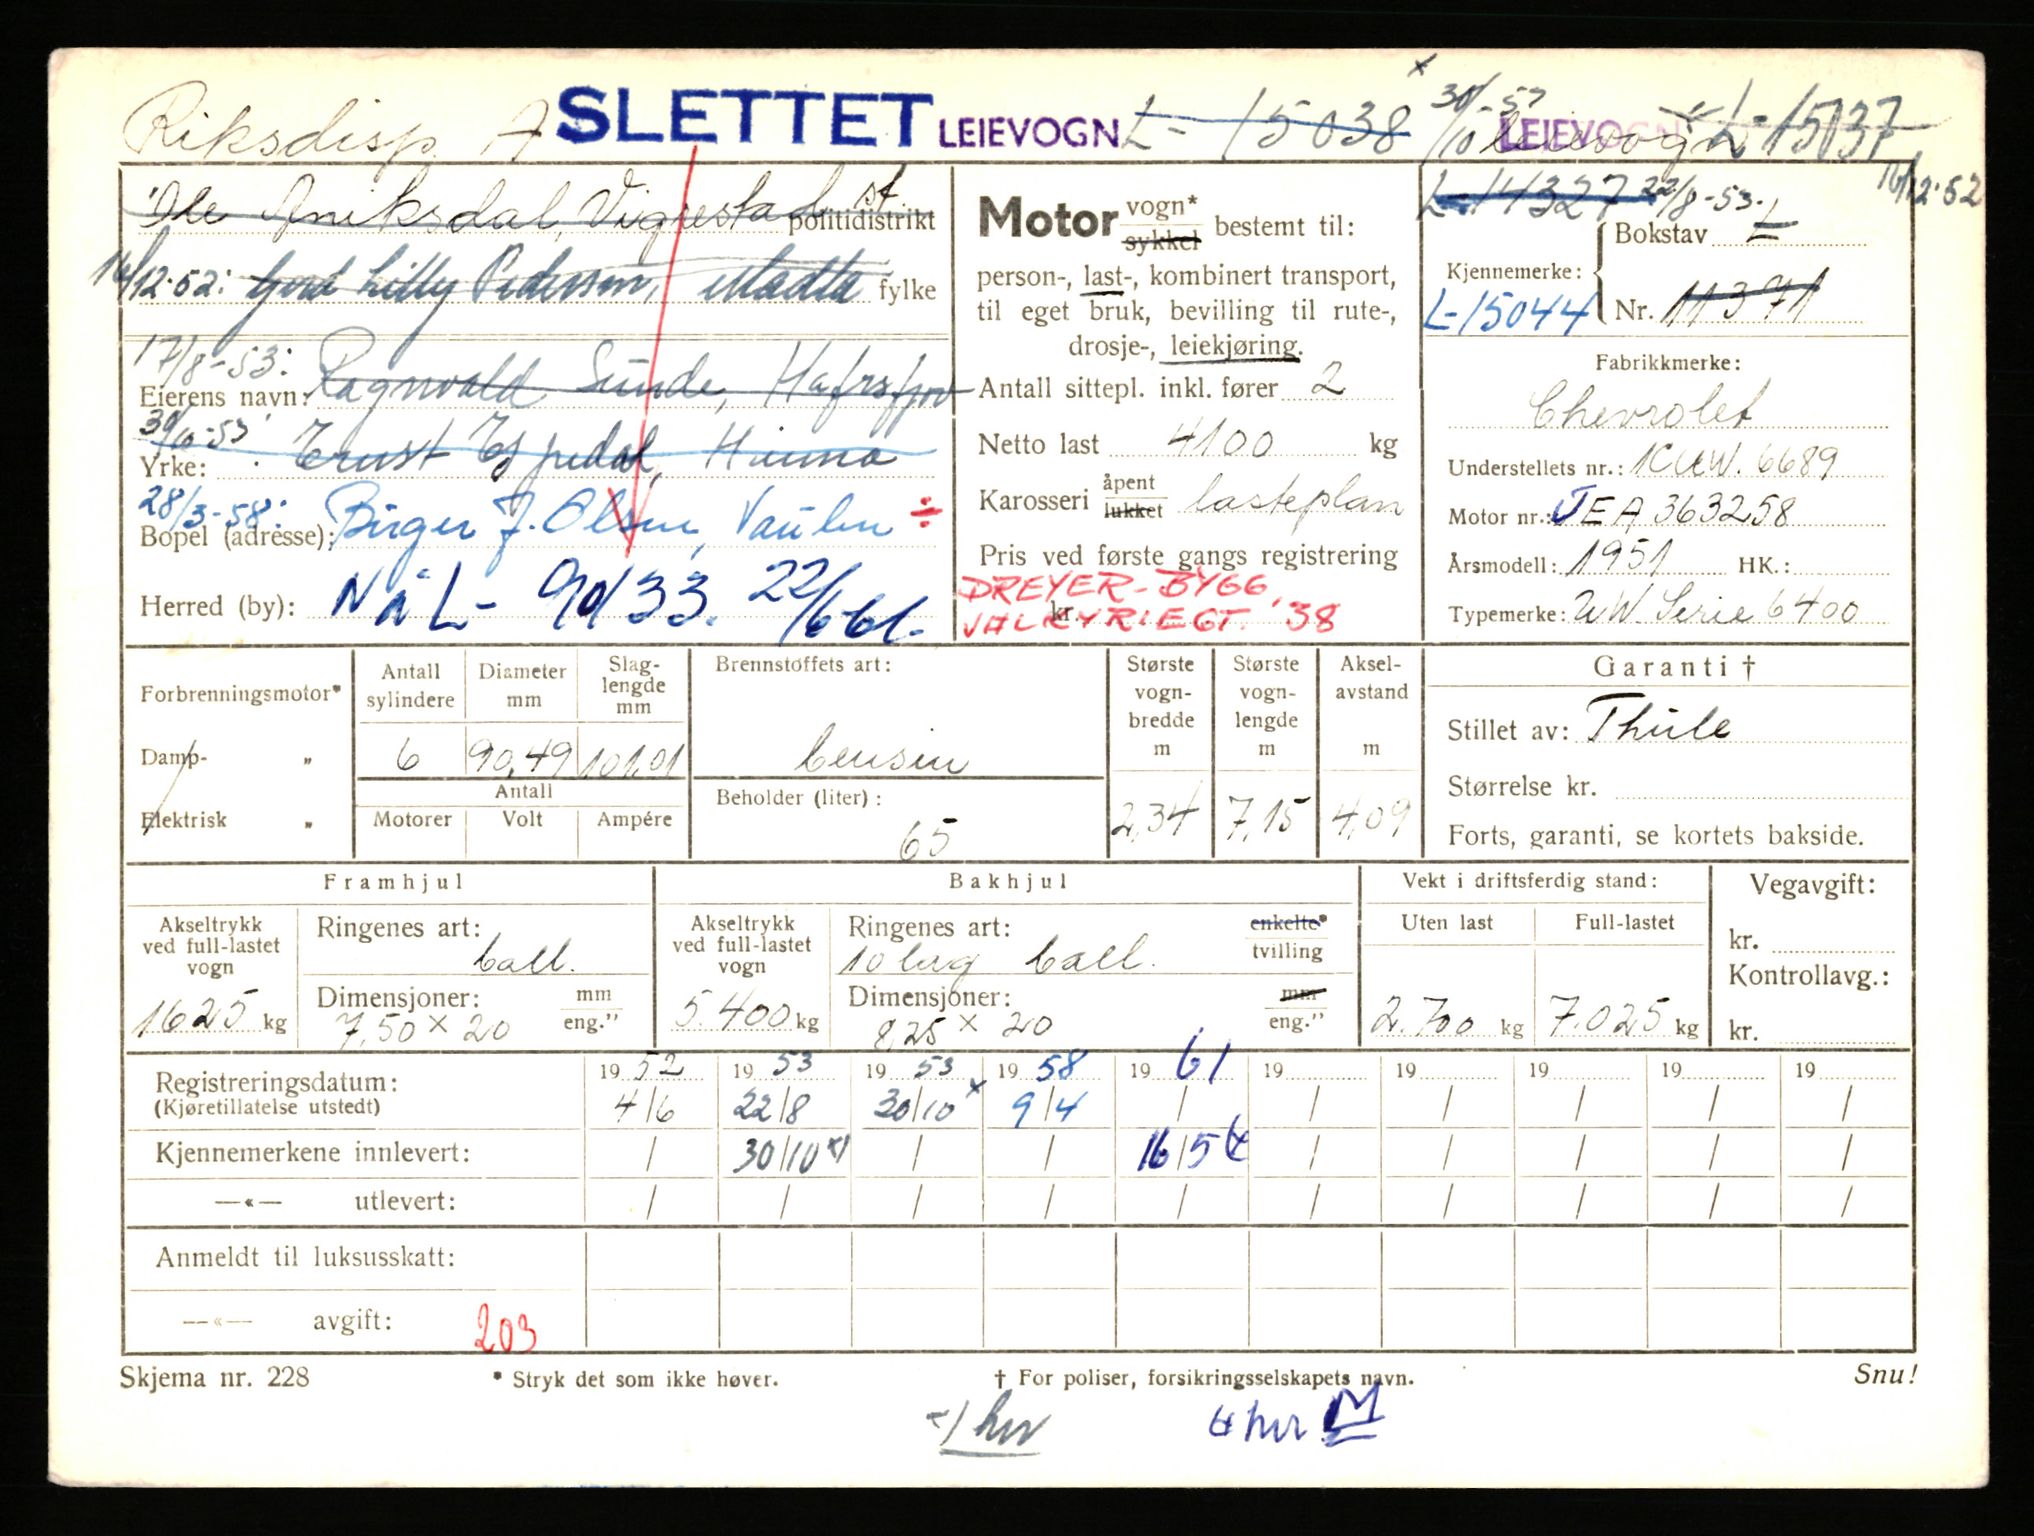 Riksdisp. A SLETTET LEIEVOGN L-15038 x 30/10-53 LEIEVOGN leievogn L-15037
Ole Aniksdal, Vigrestad st. politidistrikt
16/12-52: Gerd Lilly Pedersen, Madla fylke
17/8-53: Ragnvald Sunde, Hafrsfjord
Eierens navn:
30/10-53: Ernst Espedal, Hinna
Yrke:
28/3-58: Birger J. Olsen, Vaulen ÷
Bopel (adresse):
Herred (by): NÅ L- 90133. 22/6-61.
Motor vogn* sykkel bestemt til:
person-, last-, kombinert transport,
til eget bruk, bevilling til rute-,
drosje-, leiekjøring.
Antall sittepl. inkl. fører 2
Netto last 4100 kg
Karosseri åpent lukket lasteplan
Pris ved første gangs registrering
kr.
DREYER-BYGG,
VALKYRIEGT. 38
L-14327 22/8-53. 16/12-52
Kjennemerke: Bokstav L
L-15044 Nr. 11371
Fabrikkmerke:
Chevrolet
Understellets nr.: 1CUW. 6689
Motor nr.: JEA 363258
Årsmodell: 1951 HK.:
Typemerke: UW Serie 6400
Forbrenningsmotor*
Damp- „
Elektrisk „
Antall sylindere 6
Diameter mm 90,49
Slag-lengde mm 101,01
Antall
Motorer Volt Ampére
Brennstoffets art:
bensin
Beholder (liter):
65
Største vogn-bredde m 2,34
Største vogn-lengde m 7,15
Aksel-avstand m 4,09
Garanti †
Stillet av: Thule
Størrelse kr.
Forts, garanti, se kortets bakside.
Framhjul
Akseltrykk ved full-lastet vogn 1625 kg
Ringenes art: ball.
Dimensjoner: mm eng." 7,50 x 20
Bakhjul
Akseltrykk ved full-lastet vogn 5.400 kg
Ringenes art: enkelte* tvilling
10 lag ball.
Dimensjoner: mm eng." 8,25 x 20
Vekt i driftsferdig stand:
Uten last 2.700 kg
Full-lastet 7.025 kg
Vegavgift:
kr.
Kontrollavg.:
kr.
Registreringsdatum: 19 52 19 53 19 53 19 58 19 61 19 19 19 19 19
(Kjøretillatelse utstedt) 4/6 22/8 30/10 x 9/4 / / / / / /
Kjennemerkene innlevert: / 30/10 x) / / 16/5 / / / / /
—«— utlevert: / / / / / / / / / /
Anmeldt til luksusskatt:
—«— avgift: 203
Skjema nr. 228 * Stryk det som ikke høver. † For poliser, forsikringsselskapets navn. Snu!